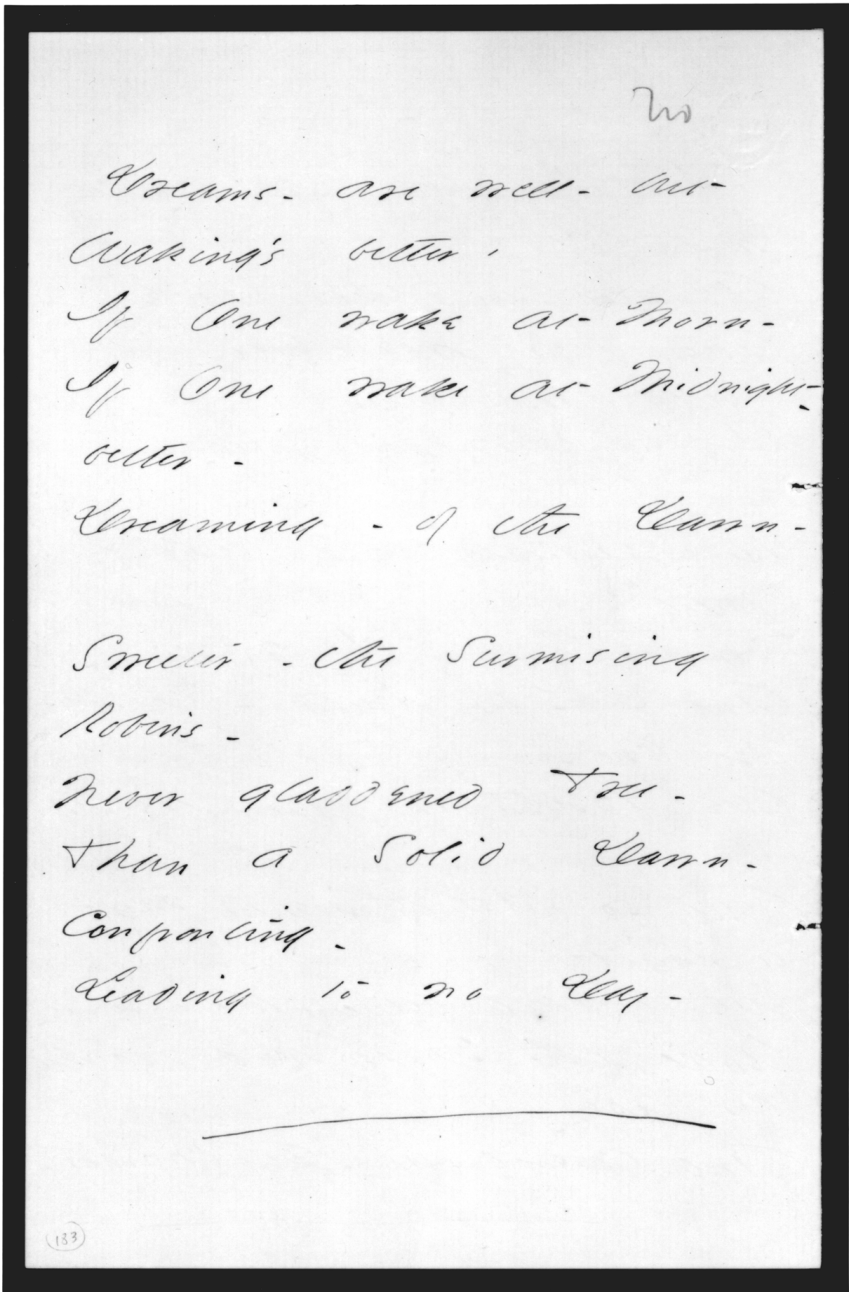 Dreams - are well - but
Waking's better,
If One wake at Morn -
If One wake at Midnight -
better -
Dreaming - of the Dawn -
Sweeter - the Surmising
Robins -
Never gladdened Tree -
Than a Solid Dawn -
Confronting -
Leading to no Day -
133